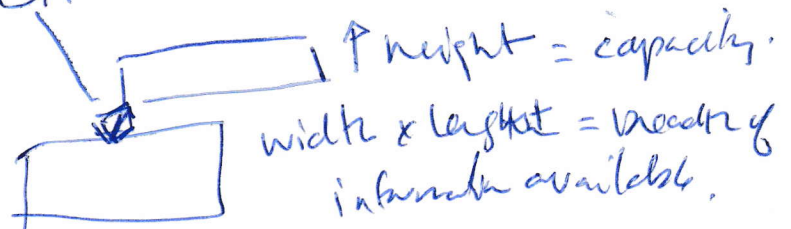 ↑ height = capacity.
width x length = breadth of
information available.